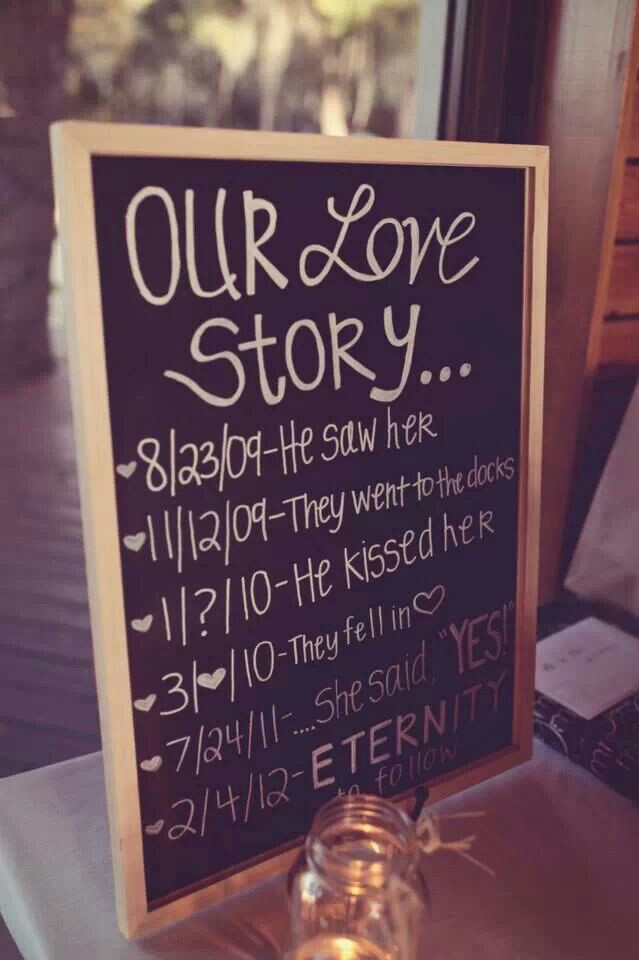 OUR Love
Story...
8/23/09-He saw her
11/12/09-They went to the docks
1/?/10-He kissed her
3/♥/10-They fell in ♡
7/24/11-....She said, "YES!"
2/4/12-ETERNITY
to follow